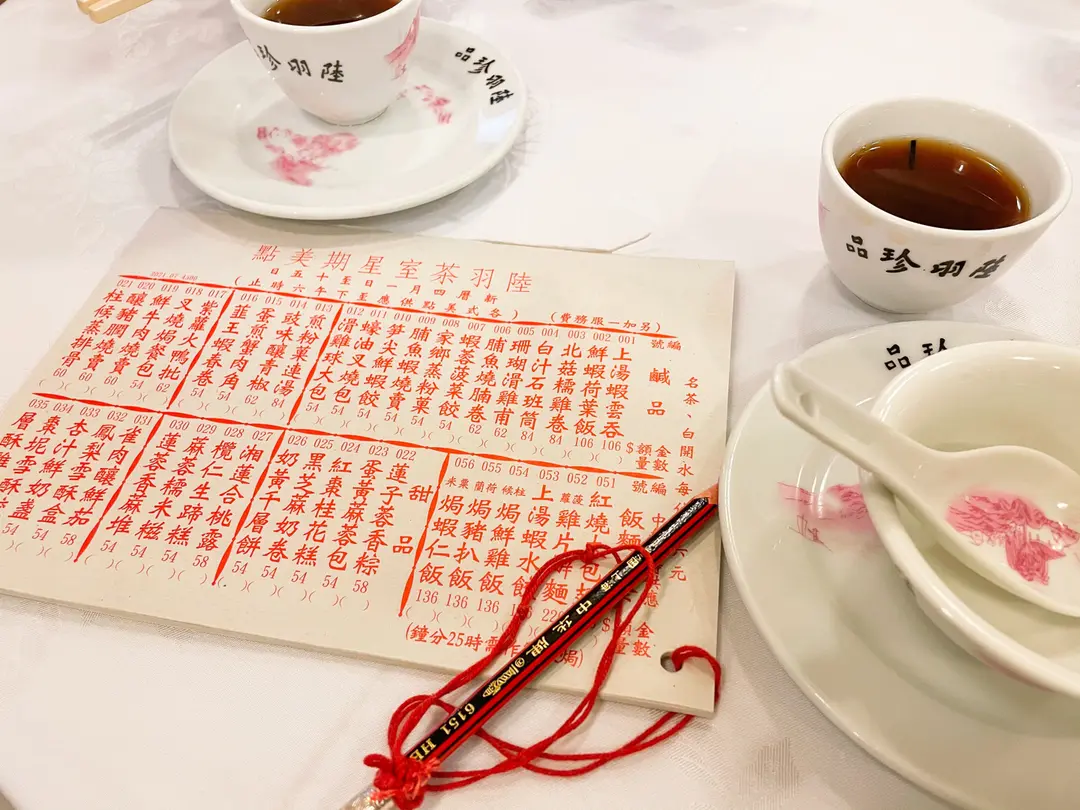 陸羽茶室星期美點
新曆四月一日至十五日
(各式美點供應至下午六時止)
(另加一服務費)
2024 07 4x00
編號
鹹品
金額$
數量
001 上湯蝦雲吞 106
002 鮮蝦荷葉飯 106
003 北菇糯雞卷
004 白汁石班筒
005 珊瑚滑雞甫 84
006 脯魚燒腩卷 62
007 蝦荃菠菜餃 54
008 家鄉蒸粉菓 54
009 脯魚蝦燒賣 54
010 筍尖鮮蝦餃 54
011 蠔油叉燒包 54
012 滑雞球大包 54
013 煎粉菓連湯 84
014 豉味釀青椒 62
015 蛋煎蟹肉角 54
016 韮王蝦春卷 54
017 紫蘿火鴨批 62
018 叉燒餐包 54
019 鮮牛肉燒賣 60
020 釀豬膶燒賣 60
021 柱候蒸排骨 60
甜品
022 蓮子蓉香粽 58
023 蛋黃麻蓉包 54
024 紅棗桂花糕 54
025 黑芝麻奶卷 54
026 奶黃千層餅 54
027 湘蓮合桃露 58
028 欖仁生蹄糕 54
029 麻蓉糯米糍 54
030 蓮蓉香麻堆 54
031 雀肉釀鮮茄
032 鳳梨雪酥盒 58
033 杏汁鮮奶 54
034 棗坭雪
035 層酥
編號
飯麵
金額$
數量
051 紅燒
052 蘿菠雞片
053 上湯蝦水麵
054 柱候焗鮮雞飯 136
055 蘭荷焗豬扒飯 136
056 粟米焗蝦仁飯 136
(焗 需時25分鐘)
名茶、白開水每
元
中華牌
6151 HB
陸羽珍品
陸羽珍品
陸羽珍品
珍品